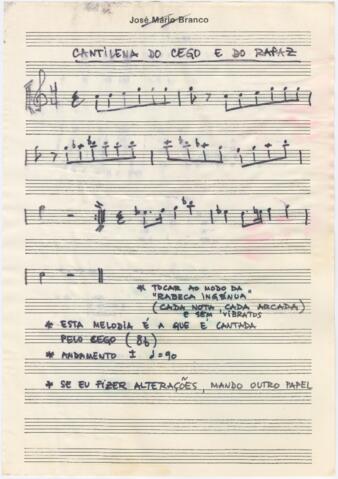 José Mário Branco
CANTILENA DO CEGO E DO RAPAZ
* TOCAR AO MODO DA
"RABECA INGÉNUA"
(CADA NOTA, CADA ARCADA)
E SEM VIBRATOS
* ESTA MELODIA É A QUE É CANTADA
PELO CEGO (8b)
* ANDAMENTO ± ♩=90
* SE EU FIZER ALTERAÇÕES, MANDO OUTRO PAPEL